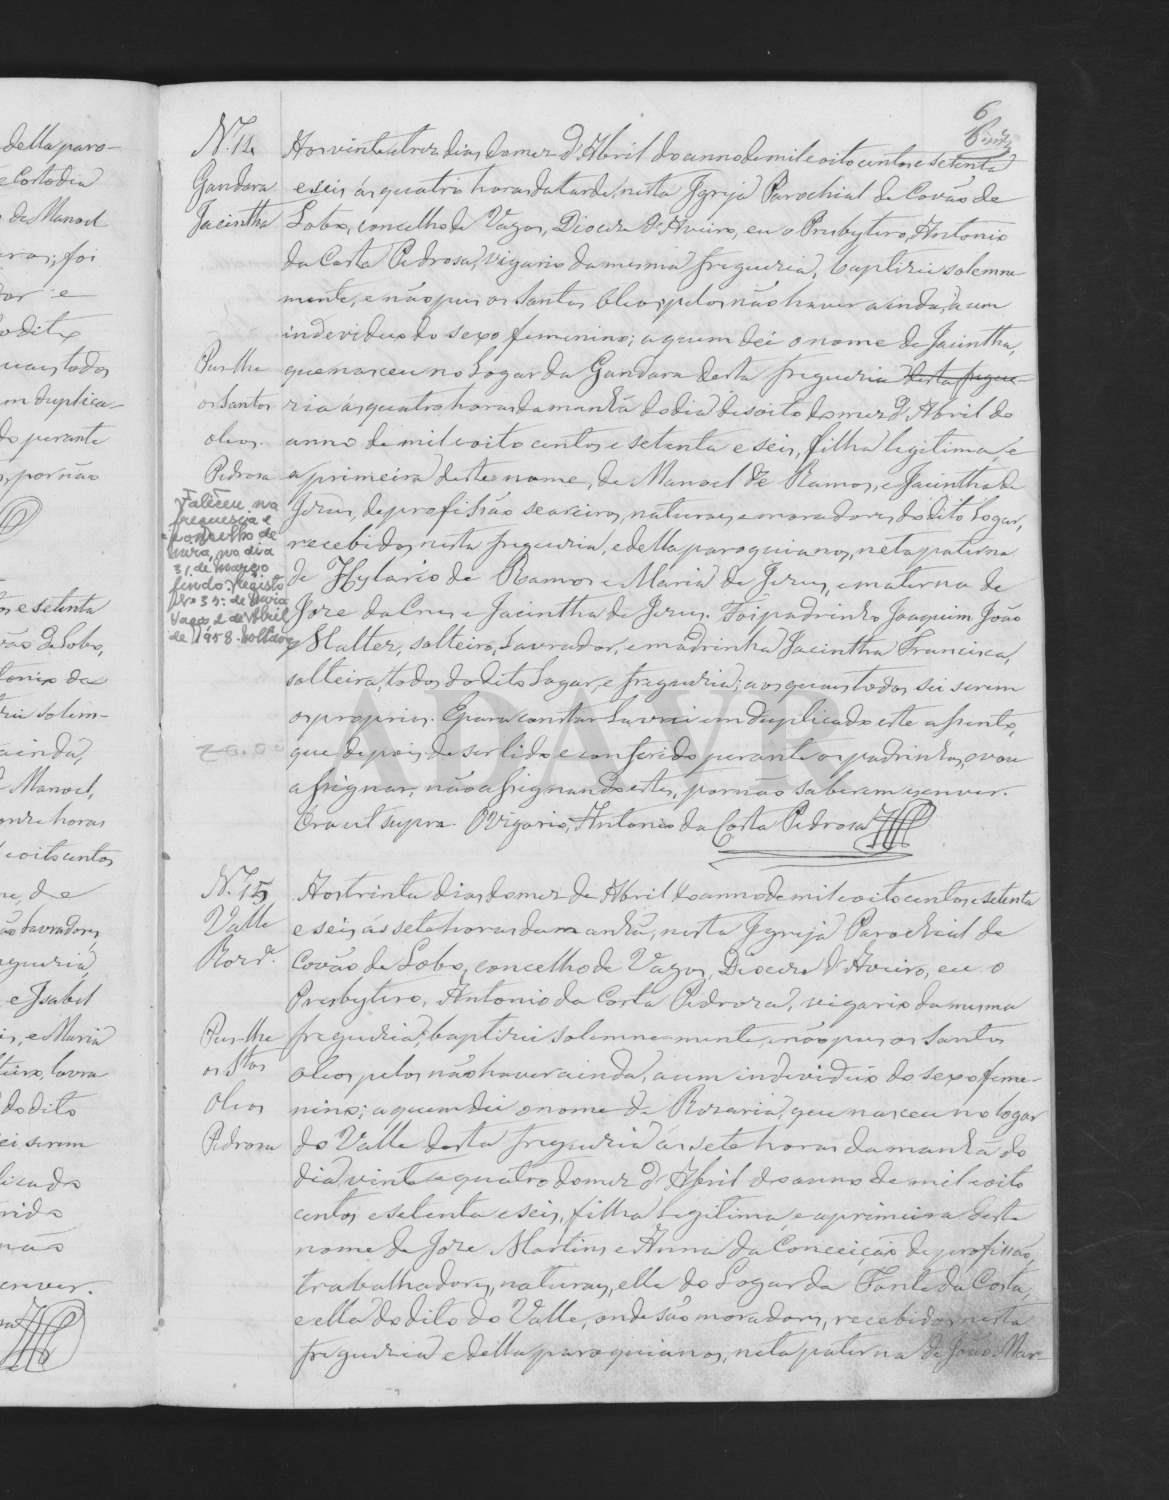 6
N.º 14
Gandara
Jacintha
Aos vinte e trez dias do mez d'Abril do anno de mil e oito centos e setenta
e seis ás quatro horas da tarde, nesta Igreja Parochial de Covão de
Lobo, concelho de Vagos, Diocese d'Aveiro, eu o Presbytero, Antonio
da Costa Pedrosa, vigario da mesma freguezia, baptizei solemne
mente, e não puz os Santos Oleos pelos não haver ainda, a um
individuo do sexo femenino; a quem dei o nome de Jacintha,
que nasceu no Logar da Gandara desta freguezia desta fregue-
ria ás quatro horas da manhã do dia desoito do mez d'Abril do
anno de mil e oito centos e setenta e seis, filha legitima, e
a primeira deste nome, de Manoel de Ramos, e Jacintha de
Jezus, de profissão seareiros, naturaes e moradores do dito Logar,
recebidos nesta freguezia, e della paroquianos, neta paterna
de Hylario de Ramos e Maria de Jezus, e materna de
Joze da Cruz e Jacintha de Jezus. Foi padrinho Joaquim João
solteiro, Lavrador, e madrinha Jacintha Francisca,
solteira, todos do dito Logar, e freguezia; aos quaes todos sei serem
os proprios. E para constar Lavrei em duplicado este assento,
que depois de ser lido e conferido perante os padrinhos, vou
assignar, não assignando estes, por não saberem escrever.
Era ut supra. O Vigario, Antonio da Costa Pedrosa
Puz-lhe
os Santos
oleos.
Pedrosa
Faleceu na
freguesia e
concelho de
no dia
31 de março
findo. Registo
Vagos 2 de Abril
de 1958.
N.º 15
Valle
Roz.ª
Aos trinta dias do mez de Abril do anno de mil e oito centos e setenta
e seis ás sete horas da manhã, nesta Igreja Parochial de
Covão de Lobo, concelho de Vagos, Diocese d'Aveiro, eu o
Presbytero, Antonio da Costa Pedroza, vigario da mesma
freguezia, baptizei solemnemente, e não puz os Santos
oleos pelos não haver ainda, a um individuo do sexo feme-
nino; a quem dei o nome de Rozaria, que nasceu no logar
do Valle desta freguezia ás sete horas da manhã do
dia vinte e quatro do mez d'Abril do anno de mil e oito
centos e setenta e seis, filha legitima, e a primeira deste
nome de Joze Martins e Anna da Conceição de profissão,
trabalhadores, naturaes, elle do Logar da Fonte da Costa,
e ella do dito do Valle, onde são moradores, recebidos nesta
freguezia e della paroquianos, neta paterna de João Mar-
Puz-lhe
os Stos
Oleos
Pedrosa
ADAVR
della paro-
e Costodia
de Manoel
foi
e
o dito
quaes todos
em duplica-
do perante
por não
os e setenta
vão de Lobo,
tonio da
zei solem-
ainda,
Manoel,
onze horas
e oito centos
de
Lavradores,
freguezia,
e Izabel
e Maria
lavra
do dito
sei serem
licado
rido
não
crever.